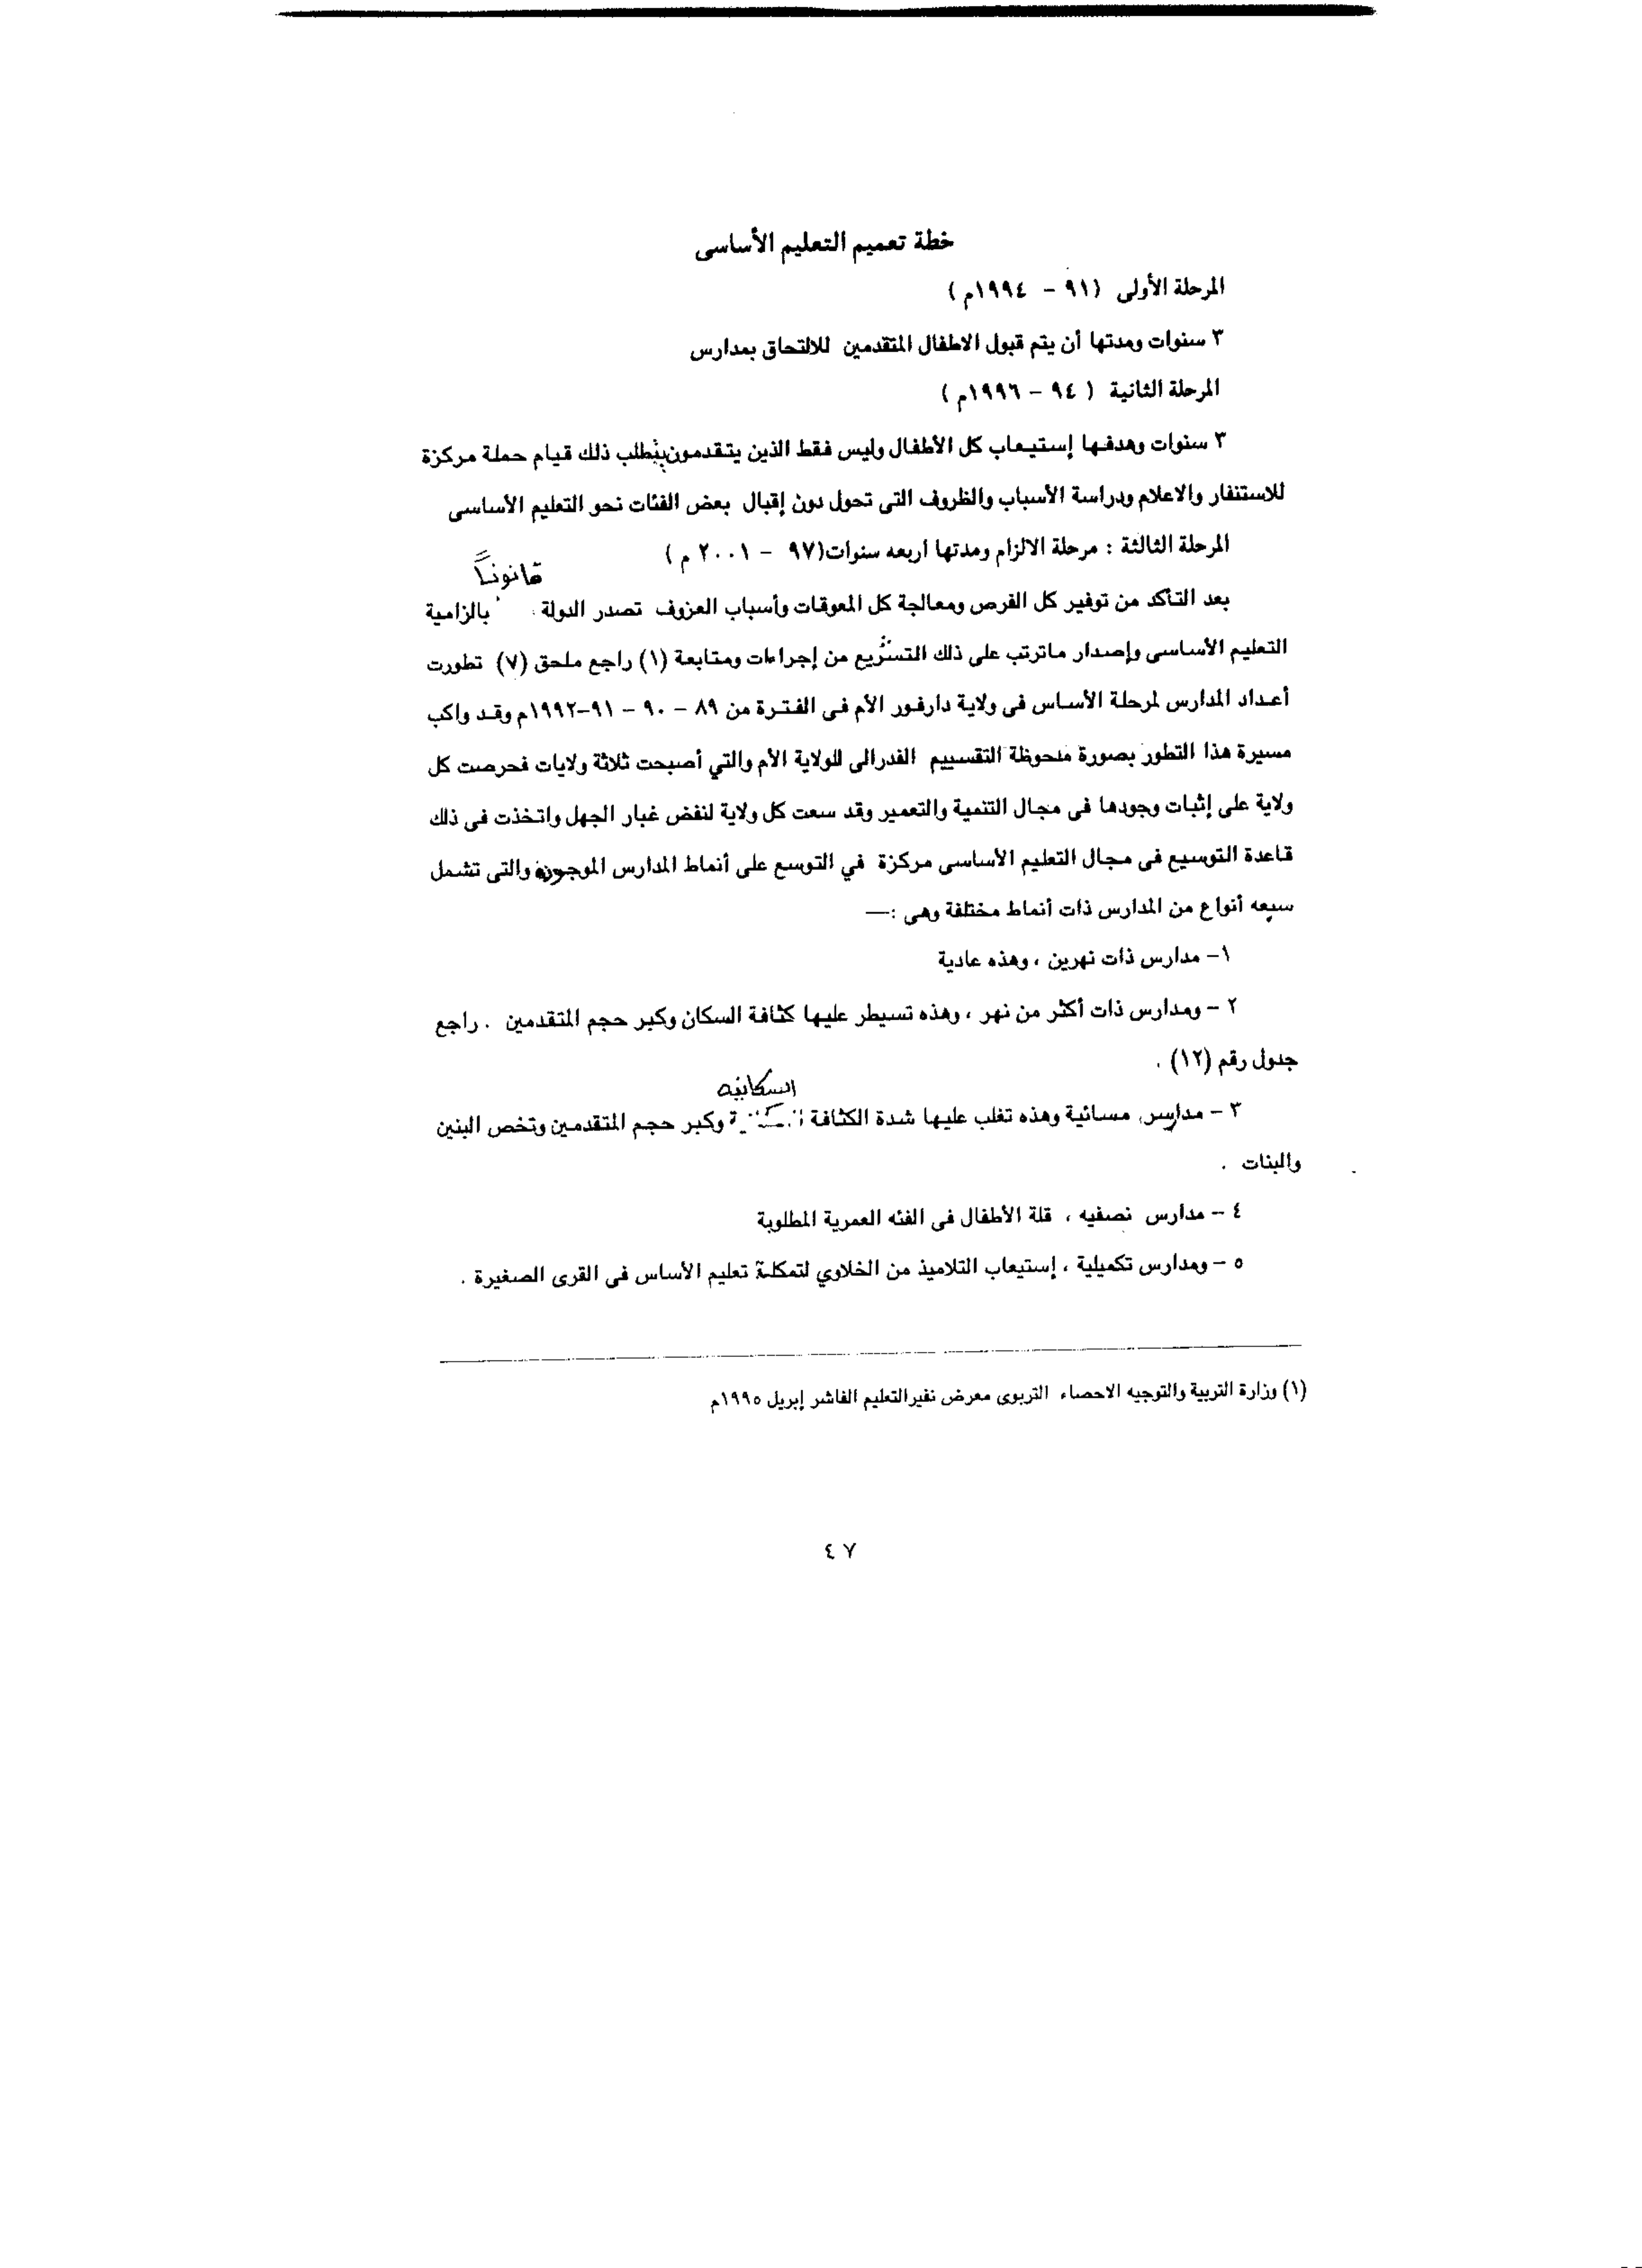 خطة تعميم التعليم الأساسى
المرحلة الأولى (٩١ - ١٩٩٤م)
٣ سنوات ومدتها أن يتم قبول الاطفال المتقدمين للالتحاق بمدارس
المرحلة الثانية (٩٤ - ١٩٩٦م)
٣ سنوات وهدفها إستيعاب كل الأطفال وليس فقط الذين يتقدمون يتطلب ذلك قيام حملة مركزة
للاستنفار والاعلام ودراسة الأسباب والظروف التى تحول دون إقبال بعض الفئات نحو التعليم الأساسى
المرحلة الثالثة : مرحلة الالزام ومدتها اربعه سنوات(٩٧ - ٢٠٠١ م)
بعد التأكد من توفير كل الفرص ومعالجة كل المعوقات وأسباب العزوف تصدر الدولة قانوناً بالزامية
التعليم الأساسى وإصدار ماترتب على ذلك التشريع من إجراءات ومتابعة (١) راجع ملحق (٧) تطورت
أعداد المدارس لمرحلة الأساس فى ولاية دارفور الأم فى الفترة من ٨٩ - ٩٠ - ٩١-١٩٩٢م وقد واكب
مسيرة هذا التطور بصورة ملحوظة التقسييم الفدرالى للولاية الأم والتي أصبحت ثلاثة ولايات فحرصت كل
ولاية على إثبات وجودها فى مجال التنمية والتعمير وقد سعت كل ولاية لنفض غبار الجهل واتخذت فى ذلك
قاعدة التوسيع فى مجال التعليم الأساسى مركزة في التوسع على أنماط المدارس الموجودة والتى تشمل
سبعه أنواع من المدارس ذات أنماط مختلفة وهى :—
١- مدارس ذات نهرين ، وهذه عادية
٢ - ومدارس ذات أكثر من نهر ، وهذه تسيطر عليها كثافة السكان وكبر حجم المتقدمين . راجع
جدول رقم (١٢) .
٣ - مدارس مسائية وهذه تغلب عليها شدة الكثافة السكانيه وكبر حجم المتقدمين وتخص البنين
والبنات .
٤ - مدارس نصفيه ، قلة الأطفال فى الفئه العمرية المطلوبة
٥ - ومدارس تكميلية ، إستيعاب التلاميذ من الخلاوي لتمكلة تعليم الأساس فى القرى الصغيرة .
(١) وزارة التربية والتوجيه الاحصاء التربوى معرض نفيرالتعليم الفاشر إبريل ١٩٩٥م
٤٧